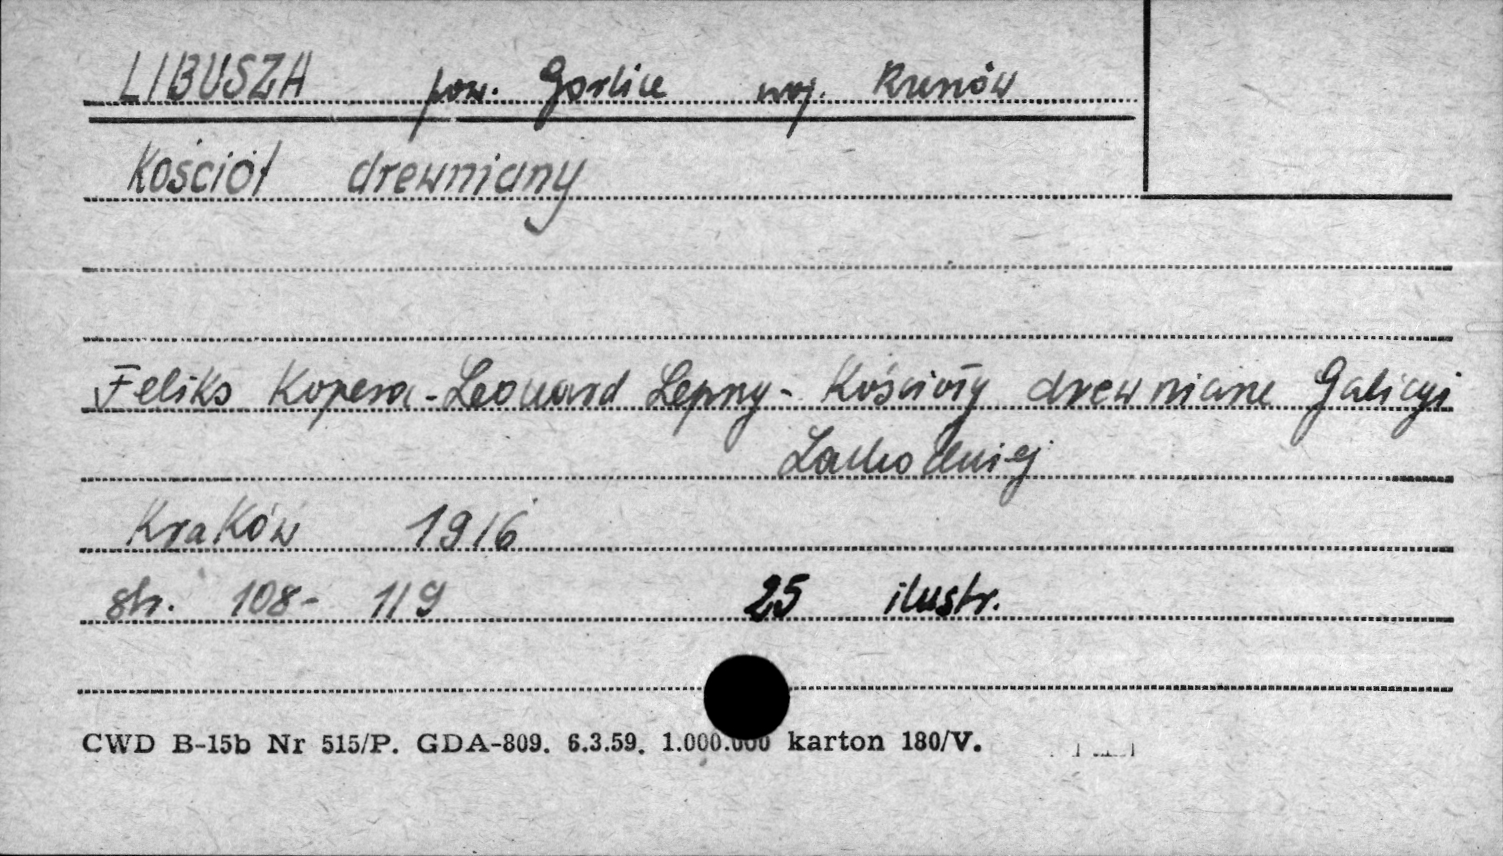 LIBUSZA pow. Gorlice woj. Rzeszów
Kościół drewniany
Feliks Kopera - Leonard Lepszy - Kościoły drewniane Galicyi
Zachodniej
Kraków 1916
str. 108 - 119 25 ilustr.
CWD B-15b Nr 515/P. GDA-809. 6.3.59. 1.000.000 karton 180/V.